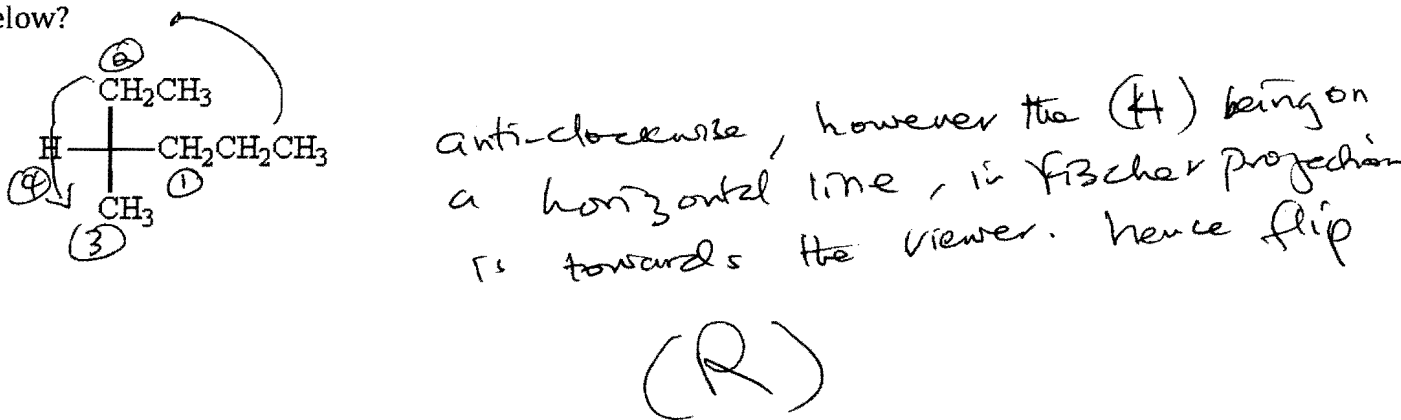 elow?
2
CH2CH3
H CH2CH2CH3
4 1
CH3
3
anti-clockwise, however the (H) being on
a horizontal line, in Fischer projection
is towards the viewer. hence flip
(R)